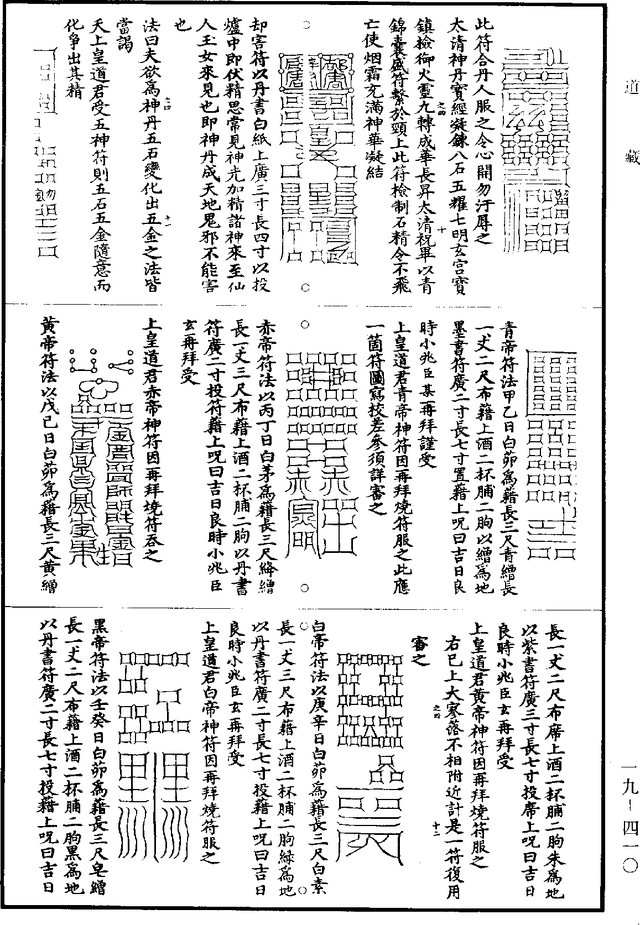 道藏
此符合丹人服之令心開勿汙辱之
太清神丹寶經凝鍊八石五耀七明玄宮寶
鎮撿御火靈九轉成華長昇太清祝畢以青
之四
十
錦囊盛符繫於頸上此符檢制石精令不飛
亡使烟霜充滿神華凝結
却害符以丹書白紙上廣三寸長四寸以投
爐中即伏精思常見神光加精諸神來至仙
人玉女來見也即神丹成天地鬼邪不能害
也
法曰夫欲為神丹五石變化出五金之法皆
之四
十一
當謁
天上皇道君受五神符則五石五金隨意而
化爭出其精
青帝符法甲乙日白茆為藉長三尺青繒長
一丈二尺布藉上酒二杯脯二朐以繒為地
墨書符廣二寸長七寸置藉上呪曰吉日良
時小兆臣某再拜謹受
上皇道君青帝神符因再拜燒符服之此應
一箇符圖寫校差參須詳審之
赤帝符法以丙丁日白茅為藉長三尺絳繒
長一丈三尺布藉上酒二杯脯二朐以丹書
符廣二寸投符藉上呪曰吉日良時小兆臣
玄再拜受
上皇道君赤帝神符因再拜燒符吞之
黃帝符法以戊己日白茆為藉長三尺黃繒
長一丈二尺布席上酒二杯脯二朐朱為地
以紫書符廣三寸長七寸投席上呪曰吉日
良時小兆臣玄再拜受
上皇道君黃帝神符因再拜燒符服之
右已上大寥落不相附近計是一符復用
之四
十二
審之
白帝符法以庚辛日白茆為藉長三尺白素
長一丈三尺布藉上酒二杯脯二朐緑為地
以丹書符廣二寸長七寸投藉上呪曰吉日
良時小兆臣玄再拜受
上皇道君白帝神符因再拜燒符服之
黑帝符法以壬癸日白茆為藉長三尺皂繒
長一丈二尺布藉上酒二杯脯二朐黑為地
以丹書符廣二寸長七寸投藉上呪曰吉日
一九—四一〇